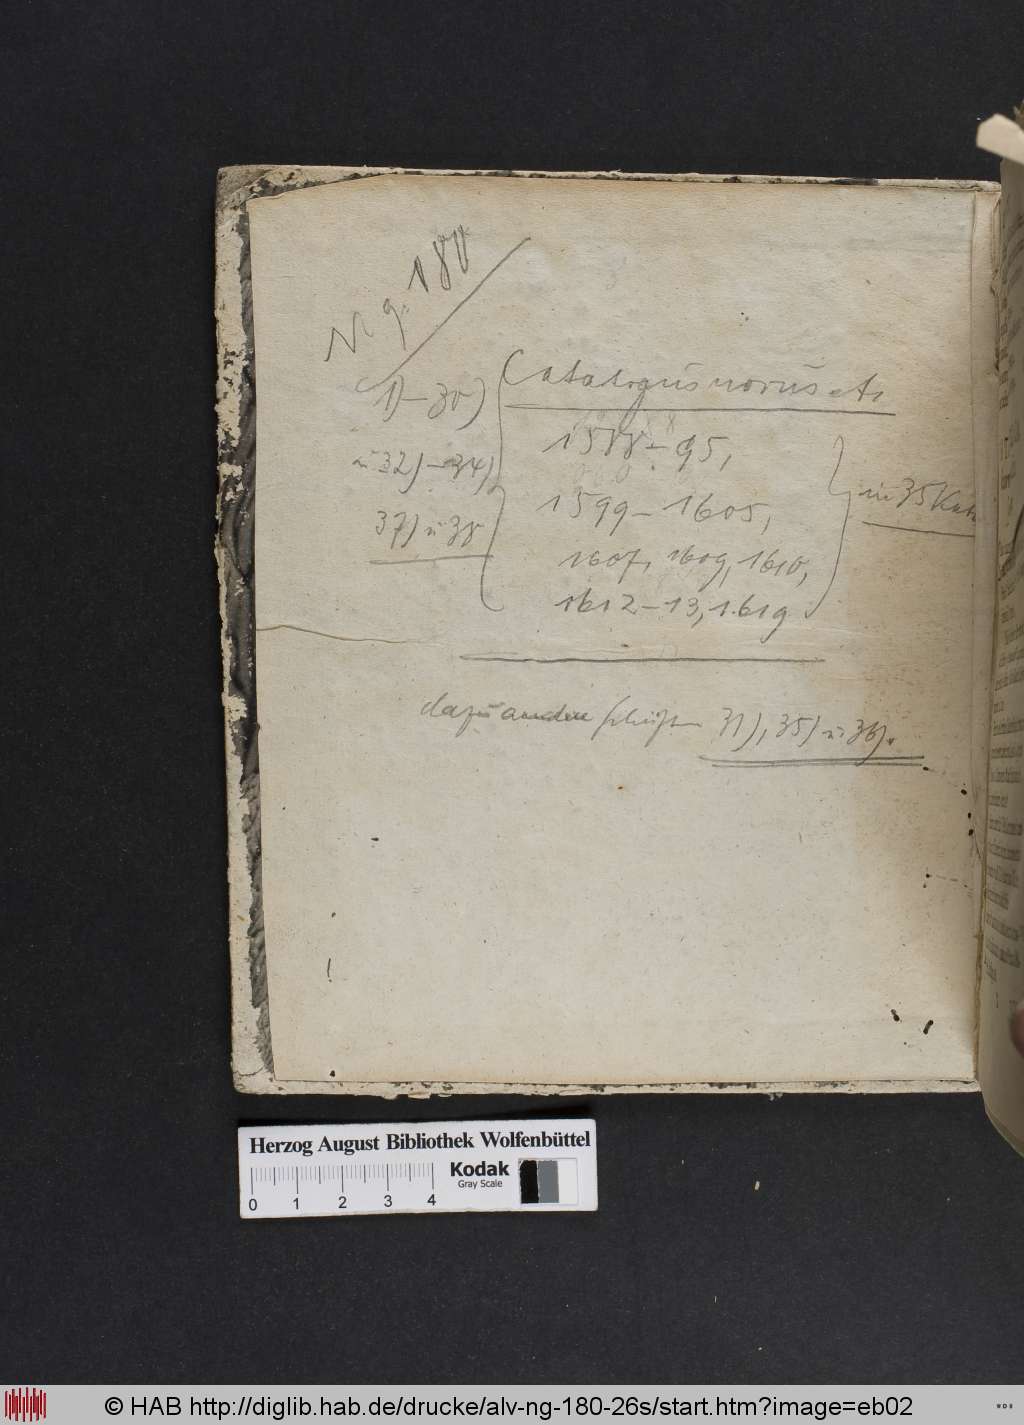 N g. 180
Catalogus novus etc
1) – 30)
1588 – 95,
u 32) – 34)
in 35 Kata
1599 – 1605,
37) u 38
1607, 1609, 1610,
1612 – 13, 1619
dazu andere Schriften 31), 35) u 36).
Herzog August Bibliothek Wolfenbüttel
Kodak
Gray Scale
0 1 2 3 4
© HAB http://diglib.hab.de/drucke/alv-ng-180-26s/start.htm?image=eb02